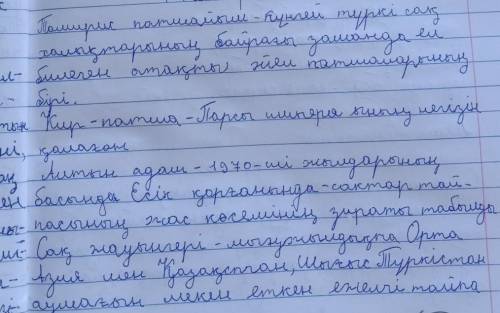 Томирис патшайым - күнгей түркі сақ
халықтарының байрағы заманда ел
ил- билеген атақты әйел патшаларының
- бірі.
тын Кир - патша - Парсы империясының негізін
ні, қалаған
ың Алтын адам - 1970-ші жылдарының
ен басында Есік қорғанында - сақтар тай-
ны- пасының жас көсемінің зираты табылды
Сақ жауынгері - мыңжылдықта Орта
Азия мен Қазақстан, Шығыс Түркістан
аумағын мекен еткен ежелгі тайпа